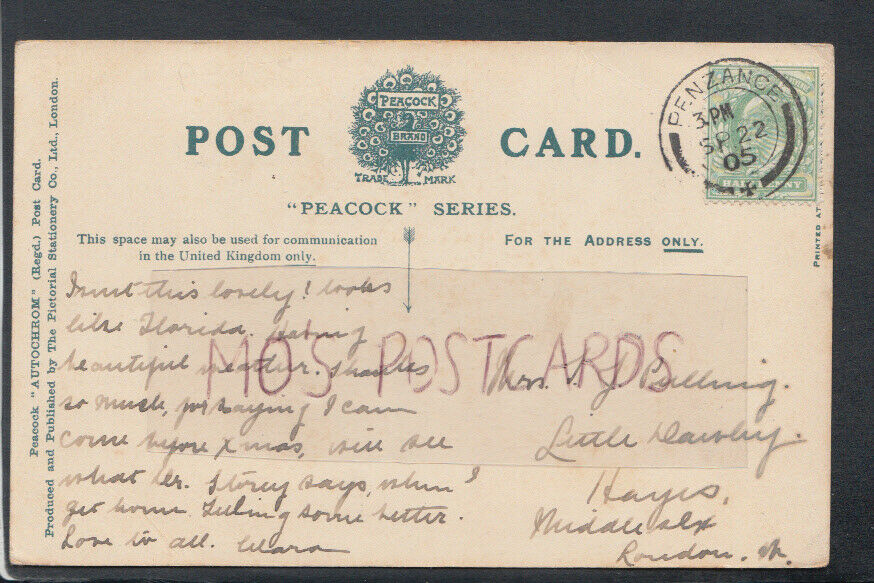 PEACOCK
BRAND
TRADE MARK
POST CARD.
"PEACOCK" SERIES.
This space may also be used for communication
in the United Kingdom only.
FOR THE ADDRESS ONLY.
Peacock "AUTOCHROM" (Regd.) Post Card.
Produced and Published by The Pictorial Stationery Co., Ltd., London.
PRINTED AT
PENZANCE
3 PM
SP 22
05
HALFPENNY
Isn't this lovely! looks
like Florida. Having
beautiful weather. Thanks
so much for saying I can
come before Xmas, will see
what Dr. Storey says, when I
get home. Feeling some better.
Love to all. Clara
Mrs. Pulling.
Little Dawley.
Hayes,
Middlesex
London. W.
MO'S POSTCARDS